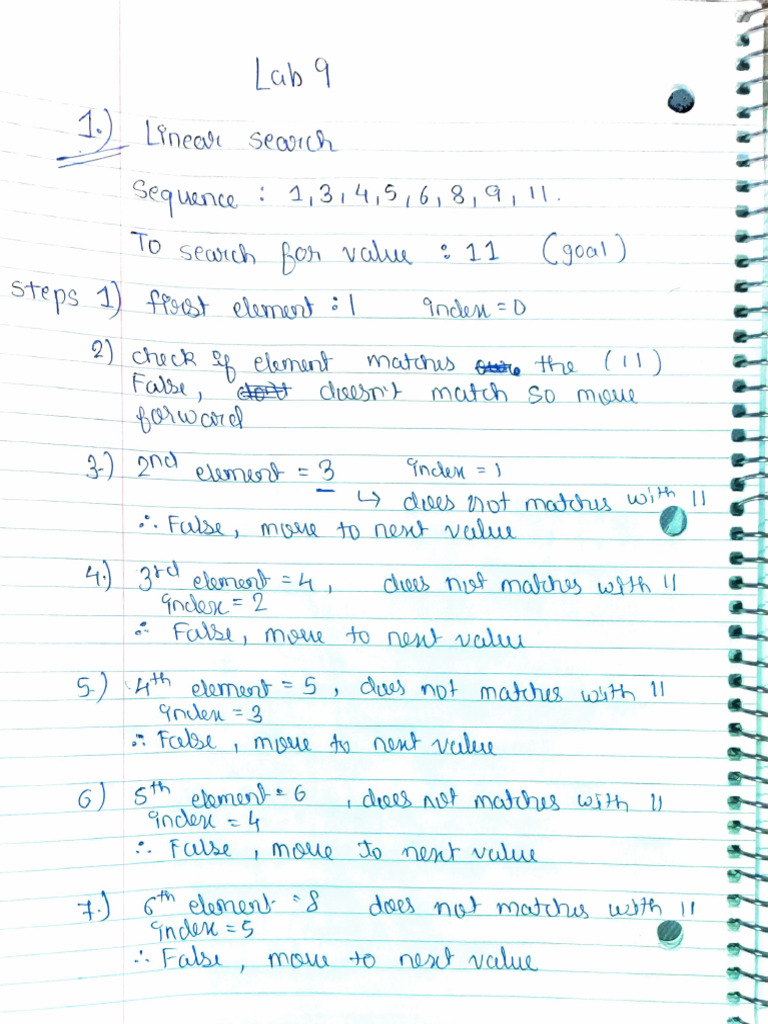 Lab 9
1.) Linear search
Sequence : 1,3,4,5,6,8,9,11.
To search for value : 11 (goal)
steps 1) first element : 1 index = 0
2) check if element matches the (11)
False, doesn't match so move
forward
3.) 2nd element = 3 index = 1
↳ does not matches with 11
∴ False, move to next value
4.) 3rd element = 4, does not matches with 11
index = 2
∴ False, move to next value
5.) 4th element = 5, does not matches with 11
index = 3
∴ False, move to next value
6) 5th element = 6, does not matches with 11
index = 4
∴ False, move to next value
7.) 6th element = 8 does not matches with 11
index = 5
∴ False, move to next value